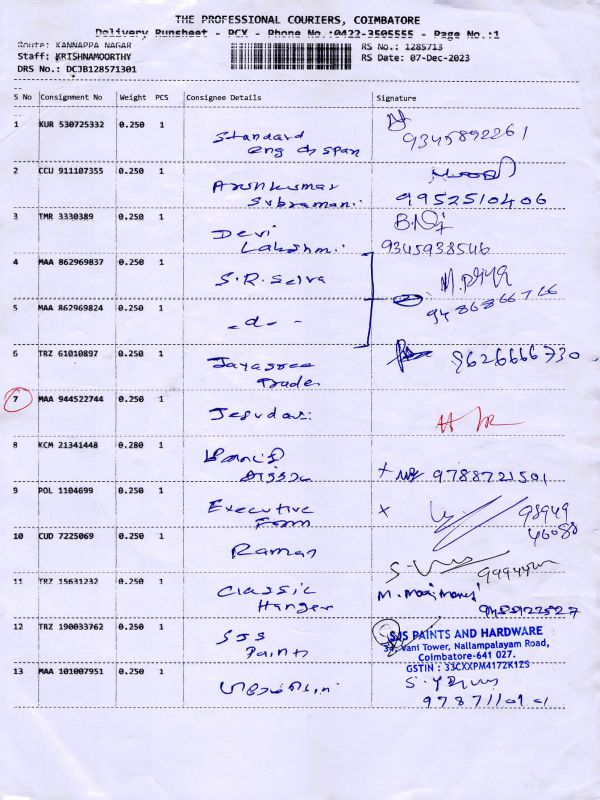 THE PROFESSIONAL COURIERS, COIMBATORE
Delivery Runsheet - PCX - Phone No.:0422-3505555 - Page No.:1
Route: KANNAPPA NAGAR
RS No.: 1285713
Staff: KRISHNAMOORTHY
RS Date: 07-Dec-2023
DRS No.: DCJB128571301
S No Consignment No Weight PCS Consignee Details Signature
1 KUR 530725332 0.250 1 Standard
eng d span 9345892261
2 CCU 911107355 0.250 1 Arunkumar
Subramani 9952510406
3 TMR 3330389 0.250 1 Devi
Lakshmi 9345938546
4 MAA 862969837 0.250 1 S.R. Selva
5 MAA 862969824 0.250 1 -d-
6 TRZ 61010897 0.250 1 Jayasree
Trader 9626666730
7 MAA 944522744 0.250 1
8 KCM 21341448 0.280 1 9788721501
9 POL 1104699 0.250 1 Executive
Form 98949
46088
10 CUD 7225069 0.250 1 Raman
11 TRZ 15631232 0.250 1 Classic
Hanger
12 TRZ 190033762 0.250 1 SJS
Paints
SJS PAINTS AND HARDWARE
Vani Tower, Nallampalayam Road,
Coimbatore-641 027.
GSTIN : 33CXXPM4172K1ZS
13 MAA 101007951 0.250 1